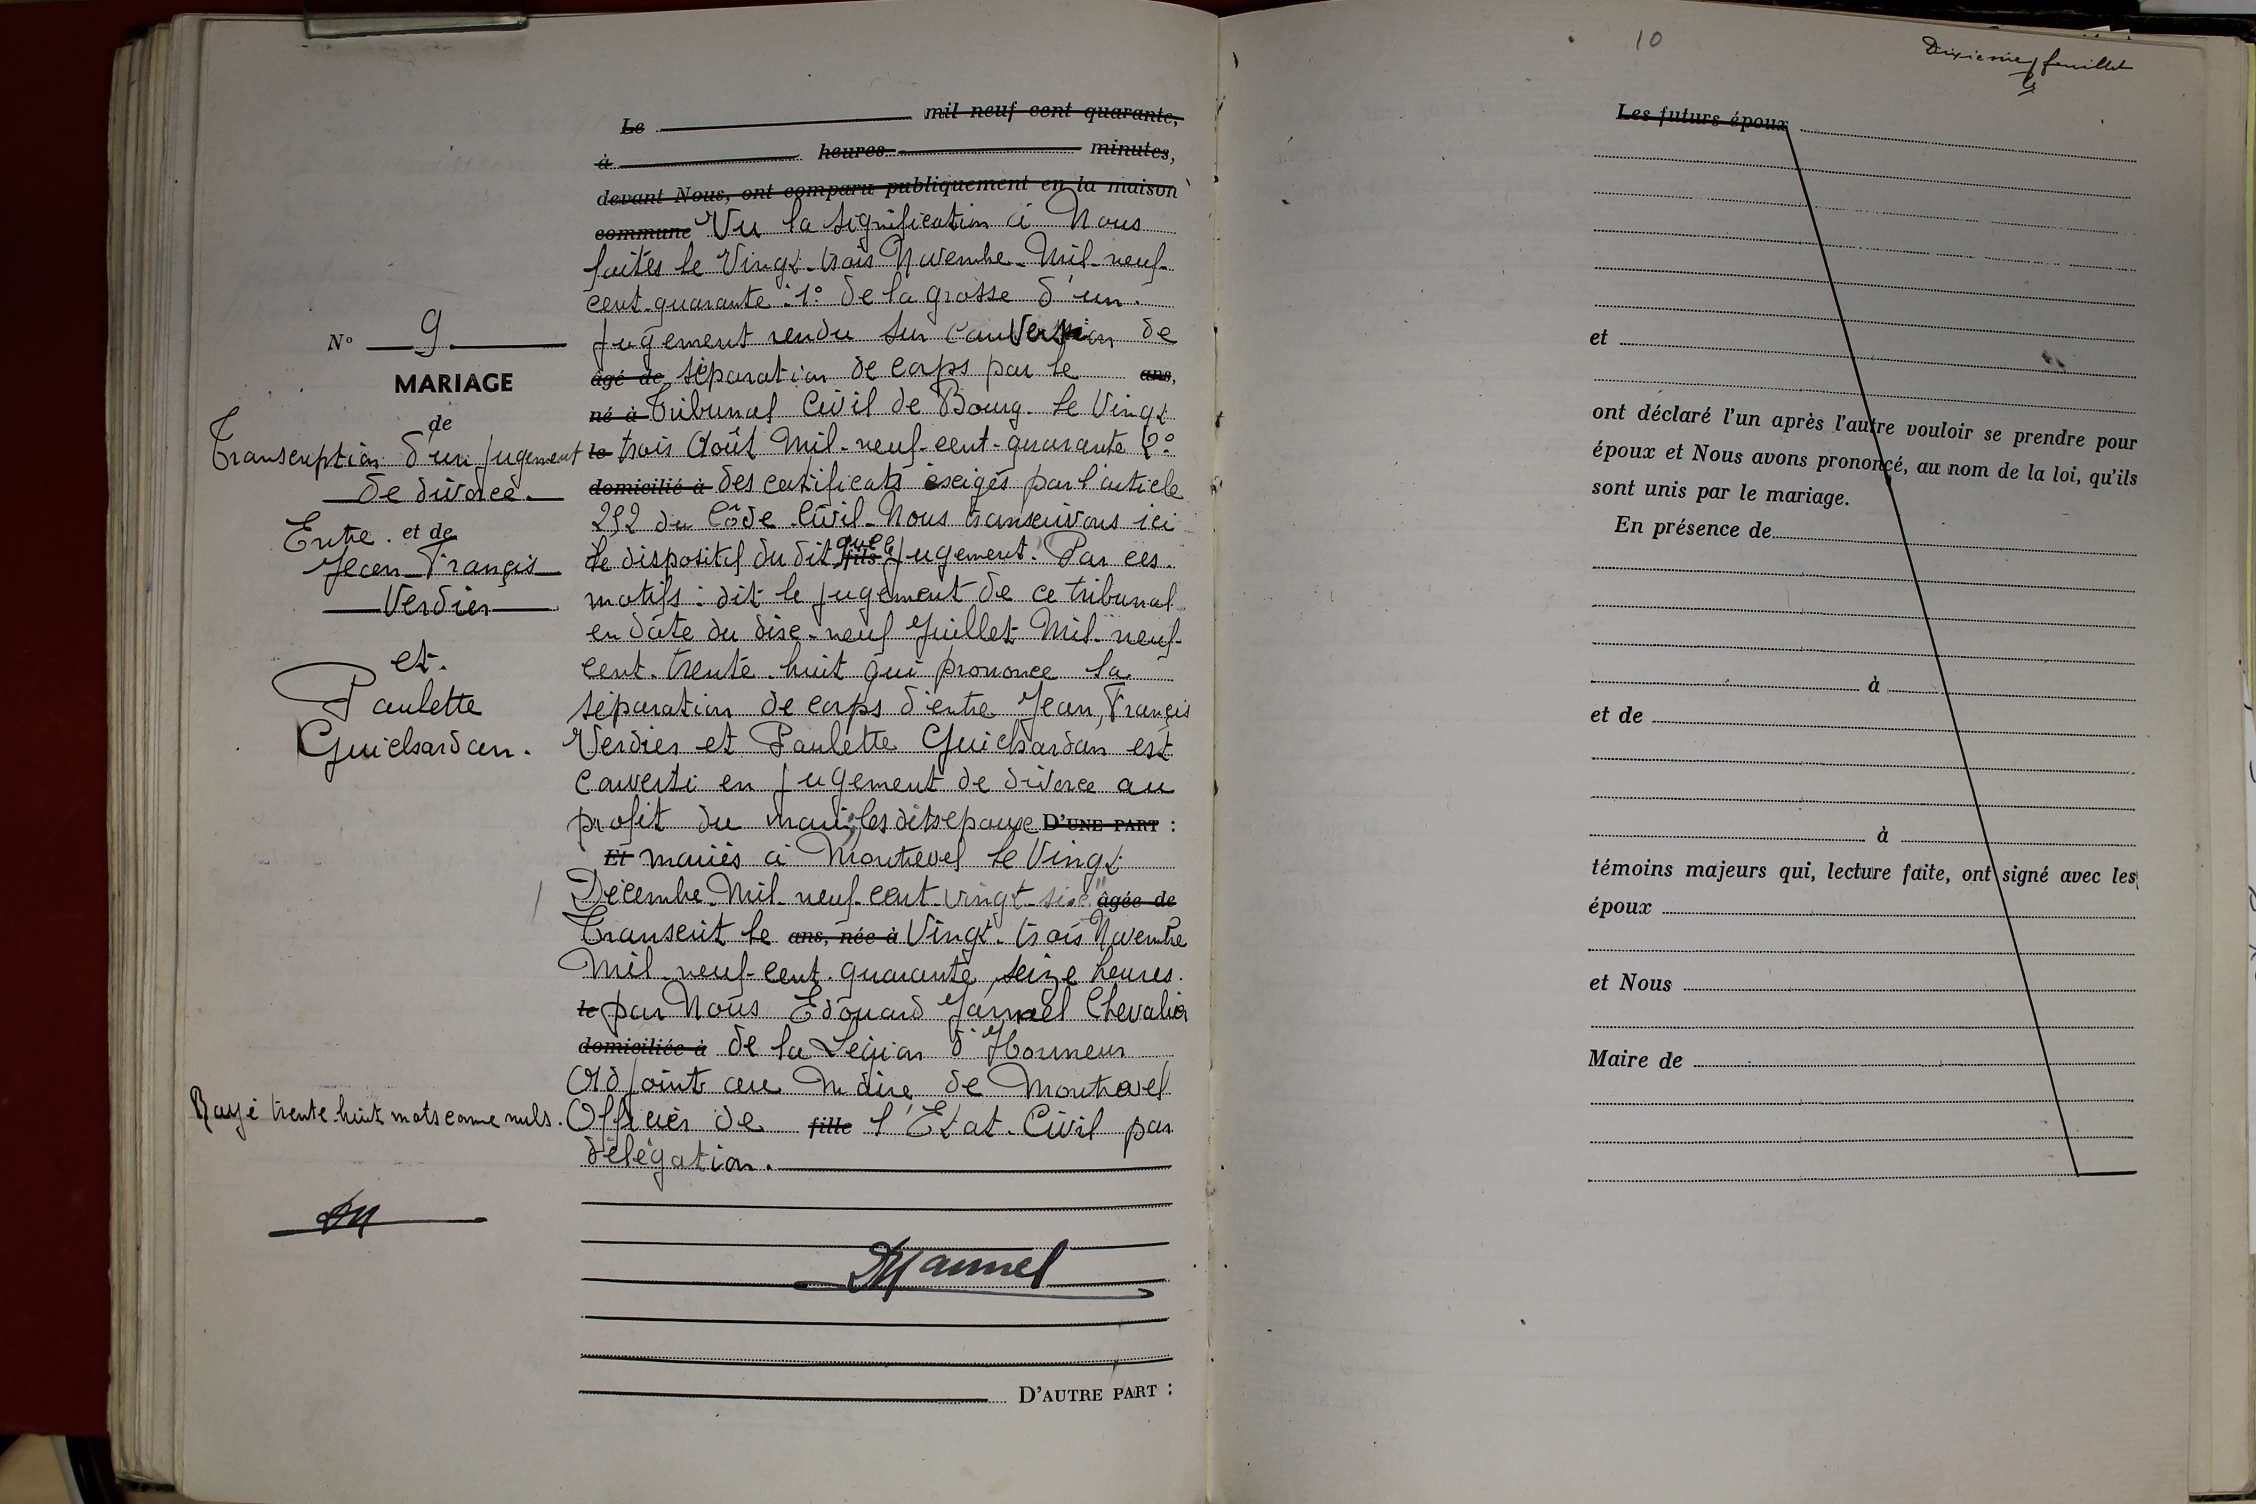 Le mil neuf cent quarante,
à heures minutes,
devant Nous, ont comparu publiquement en la maison
commune Vu la signification à Nous
faites le Vingt-trois Novembre Mil-neuf-
cent-quarante : 1° de la grosse d'un
N° 9
jugement rendu sur conversion de
MARIAGE
âgé de séparation de corps par le ans,
né à Tribunal Civil de Bourg le Vingt
de
Transcription d'un jugement
le trois Août Mil-neuf-cent-quarante 2°
de divorce.
domicilié à des certificats exigés par l'article
252 du Côde Civil. Nous transcrivons ici
Entre et de
Jean François
le dispositif du dit fils jugement. Par ces
Verdier
motifs : dit le jugement de ce tribunal
en date du dix-neuf Juillet Mil-neuf-
et
cent-trente-huit qui prononce la
Paulette
séparation de corps d'entre Jean, François
Guichardan.
Verdier et Paulette Guichardan est
converti en jugement de divorce au
profit du mari, les dits epoux D'UNE PART :
Et mariés à Montrevel le Vingt
Décembre Mil-neuf-cent-vingt-six" âgée de
Transcrit le ans, née à Vingt-trois Novembre
Mil-neuf-cent-quarante, seize heures
le par Nous Edouard Jarmel Chevalier
domiciliée à de la Légion d'Honneur
Adjoint au Maire de Montrevel
Rayé trente huit mots comme nuls.
Officier de fille l'Etat-Civil par
délégation.
D'AUTRE PART :
10
Dixième feuillet
Les futurs époux
et
ont déclaré l'un après l'autre vouloir se prendre pour
époux et Nous avons prononcé, au nom de la loi, qu'ils
sont unis par le mariage.
En présence de
à
et de
à
témoins majeurs qui, lecture faite, ont signé avec les
époux
et Nous
Maire de